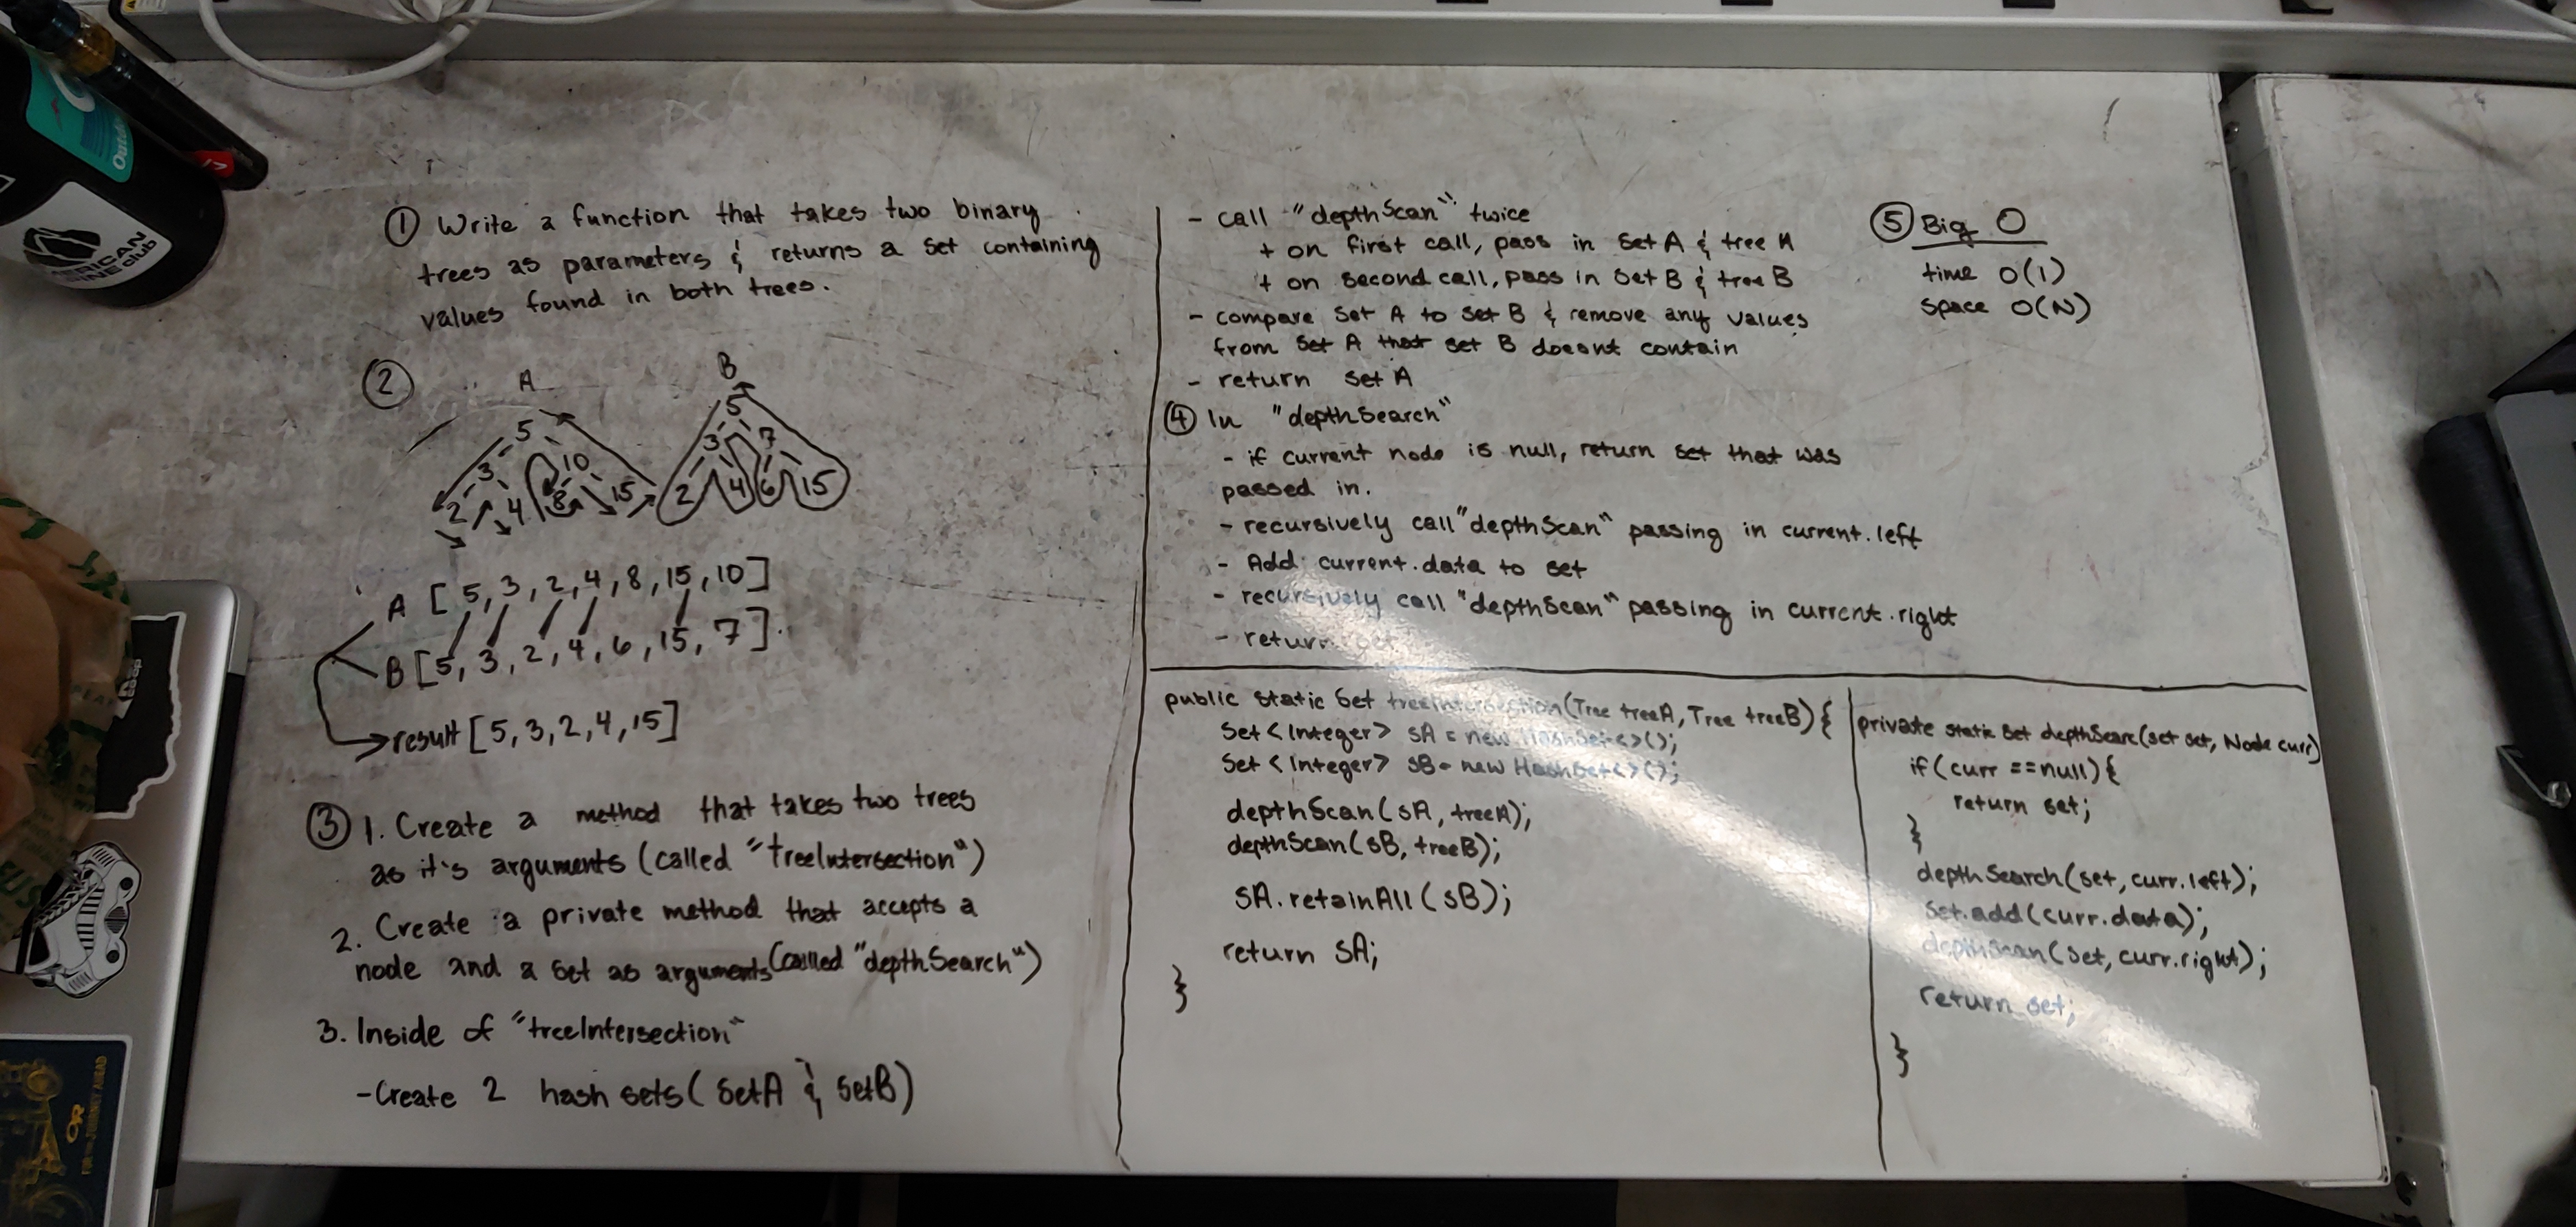 ① Write a function that takes two binary
trees as parameters & returns a set containing
values found in both trees.
②
A
5
3 10
2 4 8 15
B
5
3 7
2 4 6 15
A [5, 3, 2, 4, 8, 15, 10]
B [5, 3, 2, 4, 6, 15, 7]
result [5, 3, 2, 4, 15]
③ 1. Create a method that takes two trees
as it's arguments (called "treeIntersection")
2. Create a private method that accepts a
node and a set as arguments (called "depthSearch")
3. Inside of "treeIntersection"
- Create 2 hash sets (SetA & SetB)
- call "depthScan" twice
+ on first call, pass in Set A & tree A
+ on second call, pass in Set B & tree B
- compare Set A to Set B & remove any values
from Set A that set B doesnt contain
- return set A
④ In "depthSearch"
- if current node is null, return set that was
passed in.
- recursively call "depthScan" passing in current.left
- Add current.data to set
- recursively call "depthScan" passing in current.right
- return set
⑤ Big O
time O(1)
space O(N)
public static Set treeIntersection(Tree treeA, Tree treeB) {
Set<Integer> sA = new HashSet<>();
Set<Integer> sB = new HashSet<>();
depthScan(sA, treeA);
depthScan(sB, treeB);
sA.retainAll(sB);
return sA;
}
private static Set depthSearc(set set, Node curr)
if(curr ==null){
return set;
}
depthSearch(set, curr.left);
Set.add(curr.data);
depthScan(set, curr.right);
return set;
}